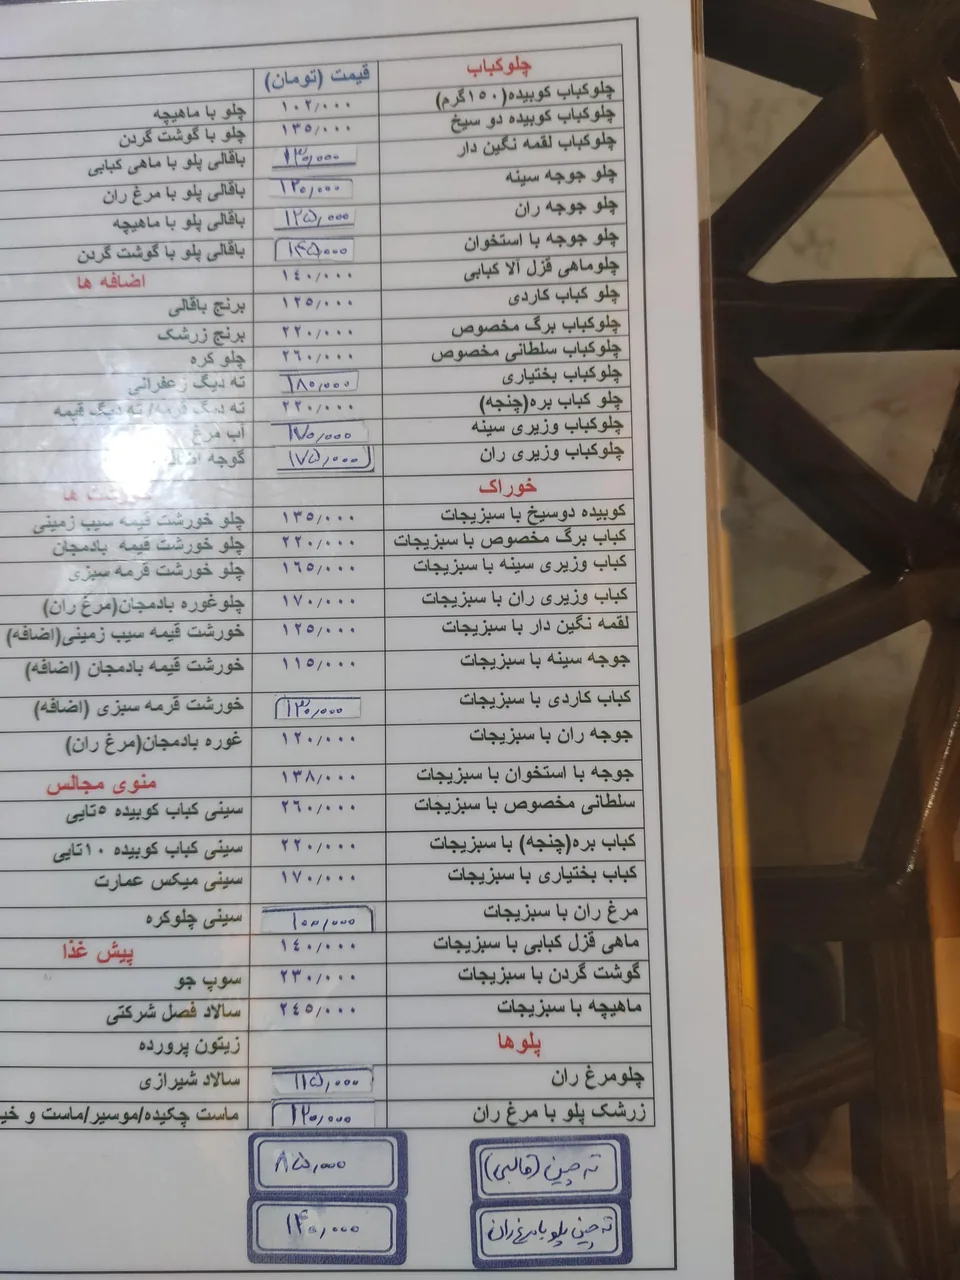 چلوکباب	قیمت (تومان)
چلوکباب کوبیده(۱۵۰گرم)	۱۰۲/۰۰۰
چلوکباب کوبیده دو سیخ	۱۳۵/۰۰۰
چلوکباب لقمه نگین دار	۱۳۰/۰۰۰
چلو جوجه سینه	۱۲۰/۰۰۰
چلو جوجه ران	۱۲۵/۰۰۰
چلو جوجه با استخوان	۱۴۵/۰۰۰
چلوماهی قزل آلا کبابی	۱٤۰/۰۰۰
چلو کباب کاردی	۱۲۵/۰۰۰
چلوکباب برگ مخصوص	۲۲۰/۰۰۰
چلوکباب سلطانی مخصوص	۲٦۰/۰۰۰
چلوکباب بختیاری	۱۸۰/۰۰۰
چلو کباب بره(چنجه)	۲۲۰/۰۰۰
چلوکباب وزیری سینه	۱۷۰/۰۰۰
چلوکباب وزیری ران	۱۷۵/۰۰۰
خوراک
کوبیده دوسیخ با سبزیجات	۱۳۵/۰۰۰
کباب برگ مخصوص با سبزیجات	۲۲۰/۰۰۰
کباب وزیری سینه با سبزیجات	۱٦۵/۰۰۰
کباب وزیری ران با سبزیجات	۱۷۰/۰۰۰
لقمه نگین دار با سبزیجات	۱۲۵/۰۰۰
جوجه سینه با سبزیجات	۱۱۵/۰۰۰
کباب کاردی با سبزیجات	۱۳۰/۰۰۰
جوجه ران با سبزیجات	۱۲۰/۰۰۰
جوجه با استخوان با سبزیجات	۱۳۸/۰۰۰
سلطانی مخصوص با سبزیجات	۲٦۰/۰۰۰
کباب بره(چنجه) با سبزیجات	۲۲۰/۰۰۰
کباب بختیاری با سبزیجات	۱۷۰/۰۰۰
مرغ ران با سبزیجات	۱۰۰/۰۰۰
ماهی قزل کبابی با سبزیجات	۱٤۰/۰۰۰
گوشت گردن با سبزیجات	۲۳۰/۰۰۰
ماهیچه با سبزیجات	۲٤۵/۰۰۰
پلوها
چلومرغ ران	۱۱۵/۰۰۰
زرشک پلو با مرغ ران	۱۲۰/۰۰۰
ته چین (قالبی)	۸۵/۰۰۰
ته چین پلو با مرغ ران	۱۴۰/۰۰۰
چلو با ماهیچه
چلو با گوشت گردن
باقالی پلو با ماهی کبابی
باقالی پلو با مرغ ران
باقالی پلو با ماهیچه
باقالی پلو با گوشت گردن
اضافه ها
برنج باقالی
برنج زرشک
چلو کره
ته دیگ زعفرانی
ته دیگ قرمه/ ته دیگ قیمه
آب مرغ
گوجه
چلو خورشت قیمه سیب زمینی
چلو خورشت قیمه بادمجان
چلو خورشت قرمه سبزی
چلوغوره بادمجان(مرغ ران)
خورشت قیمه سیب زمینی(اضافه)
خورشت قیمه بادمجان (اضافه)
خورشت قرمه سبزی (اضافه)
غوره بادمجان(مرغ ران)
منوی مجالس
سینی کباب کوبیده ۵تایی
سینی کباب کوبیده ۱۰تایی
سینی میکس عمارت
سینی چلوکره
پیش غذا
سوپ جو
سالاد فصل شرکتی
زیتون پرورده
سالاد شیرازی
ماست چکیده/موسیر/ماست و